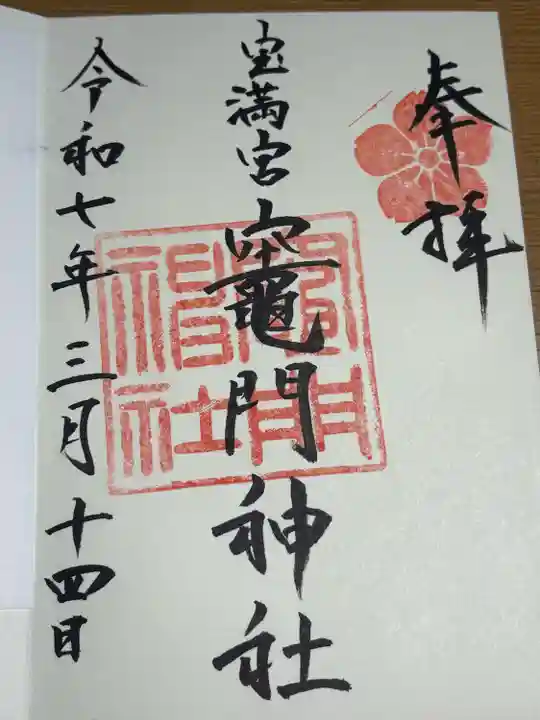 奉拝
宝満宮竈門神社
竈門神社
令和七年三月十四日